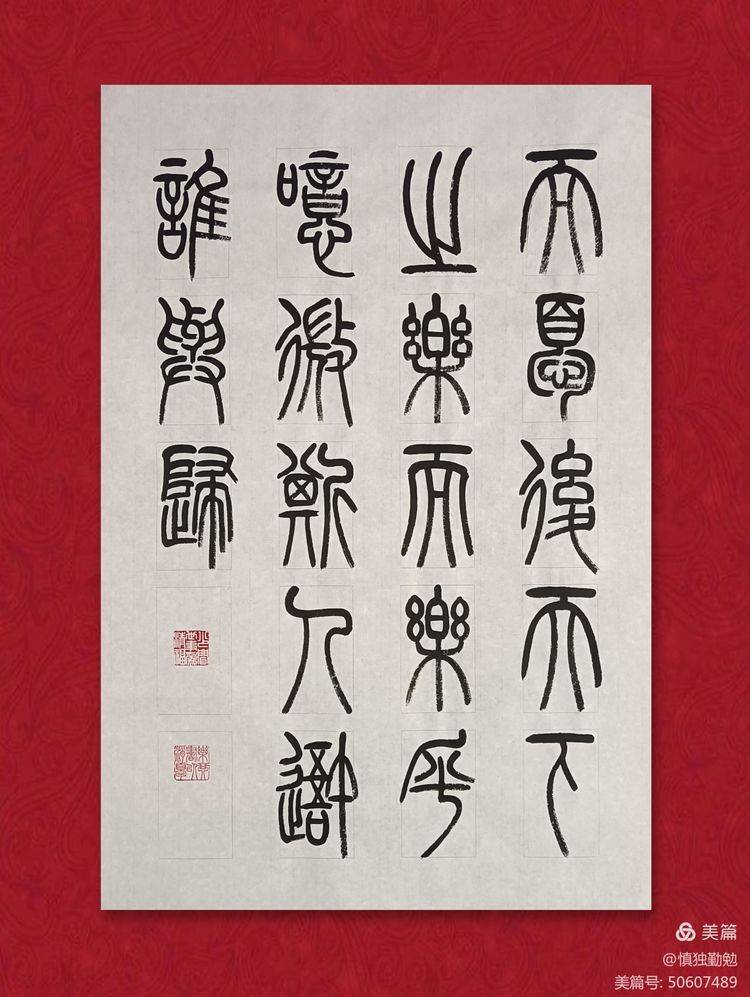 而憂後天下
之樂而樂乎
噫微斯人吾
誰與歸
美篇
@慎独勤勉
美篇号: 50607489